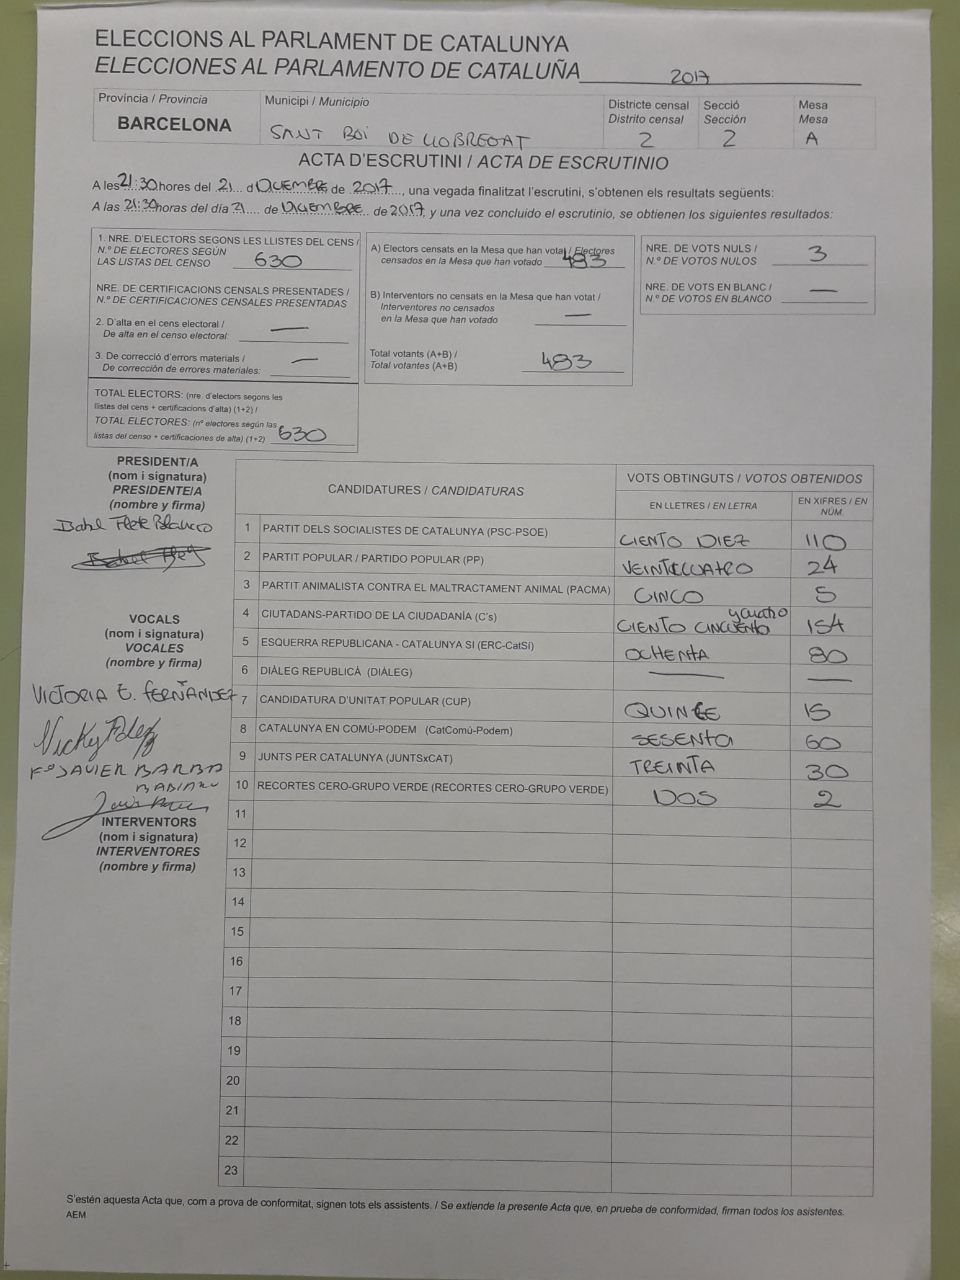 ELECCIONS AL PARLAMENT DE CATALUNYA
ELECCIONES AL PARLAMENTO DE CATALUÑA 2017
Província / Provincia
BARCELONA
Municipi / Municipio
SANT BOI DE LLOBREGAT
Districte censal
Distrito censal
2
Secció
Sección
2
Mesa
Mesa
A
ACTA D'ESCRUTINI / ACTA DE ESCRUTINIO
A les 21:30 hores del 21 d DICIEMBRE de 2017, una vegada finalitzat l'escrutini, s'obtenen els resultats següents:
A las 21:30 horas del día 21 de DICIEMBRE de 2017, y una vez concluido el escrutinio, se obtienen los siguientes resultados:
1. NRE. D'ELECTORS SEGONS LES LLISTES DEL CENS /
N.º DE ELECTORES SEGÚN
LAS LISTAS DEL CENSO 630
NRE. DE CERTIFICACIONS CENSALS PRESENTADES /
N.º DE CERTIFICACIONES CENSALES PRESENTADAS
2. D'alta en el cens electoral /
De alta en el censo electoral: —
3. De correcció d'errors materials /
De corrección de errores materiales: —
TOTAL ELECTORS: (nre. d'electors segons les
llistes del cens + certificacions d'alta) (1+2) /
TOTAL ELECTORES: (nº electores según las
listas del censo + certificaciones de alta) (1+2) 630
A) Electors censats en la Mesa que han votat / Electores
censados en la Mesa que han votado 483
B) Interventors no censats en la Mesa que han votat /
Interventores no censados
en la Mesa que han votado —
Total votants (A+B) /
Total votantes (A+B) 483
NRE. DE VOTS NULS /
N.º DE VOTOS NULOS 3
NRE. DE VOTS EN BLANC /
N.º DE VOTOS EN BLANCO —
PRESIDENT/A
(nom i signatura)
PRESIDENTE/A
(nombre y firma)
Blanco
VOCALS
(nom i signatura)
VOCALES
(nombre y firma)
VICTORIA E. FERNÁNDEZ
Vicky Fdez
Fco JAVIER BARBA
INTERVENTORS
(nom i signatura)
INTERVENTORES
(nombre y firma)
CANDIDATURES / CANDIDATURAS
VOTS OBTINGUTS / VOTOS OBTENIDOS
EN LLETRES / EN LETRA
EN XIFRES / EN NÚM.
1 PARTIT DELS SOCIALISTES DE CATALUNYA (PSC-PSOE) CIENTO DIEZ 110
2 PARTIT POPULAR / PARTIDO POPULAR (PP) VEINTICUATRO 24
3 PARTIT ANIMALISTA CONTRA EL MALTRACTAMENT ANIMAL (PACMA) CINCO 5
4 CIUTADANS-PARTIDO DE LA CIUDADANÍA (C's) CIENTO CINCUENTA y cuatro 154
5 ESQUERRA REPUBLICANA - CATALUNYA SI (ERC-CatSí) OCHENTA 80
6 DIÀLEG REPUBLICÀ (DIÀLEG) — —
7 CANDIDATURA D'UNITAT POPULAR (CUP) QUINCE 15
8 CATALUNYA EN COMÚ-PODEM (CatComú-Podem) SESENTA 60
9 JUNTS PER CATALUNYA (JUNTSxCAT) TREINTA 30
10 RECORTES CERO-GRUPO VERDE (RECORTES CERO-GRUPO VERDE) DOS 2
11
12
13
14
15
16
17
18
19
20
21
22
23
S'estén aquesta Acta que, com a prova de conformitat, signen tots els assistents. / Se extiende la presente Acta que, en prueba de conformidad, firman todos los asistentes.
AEM